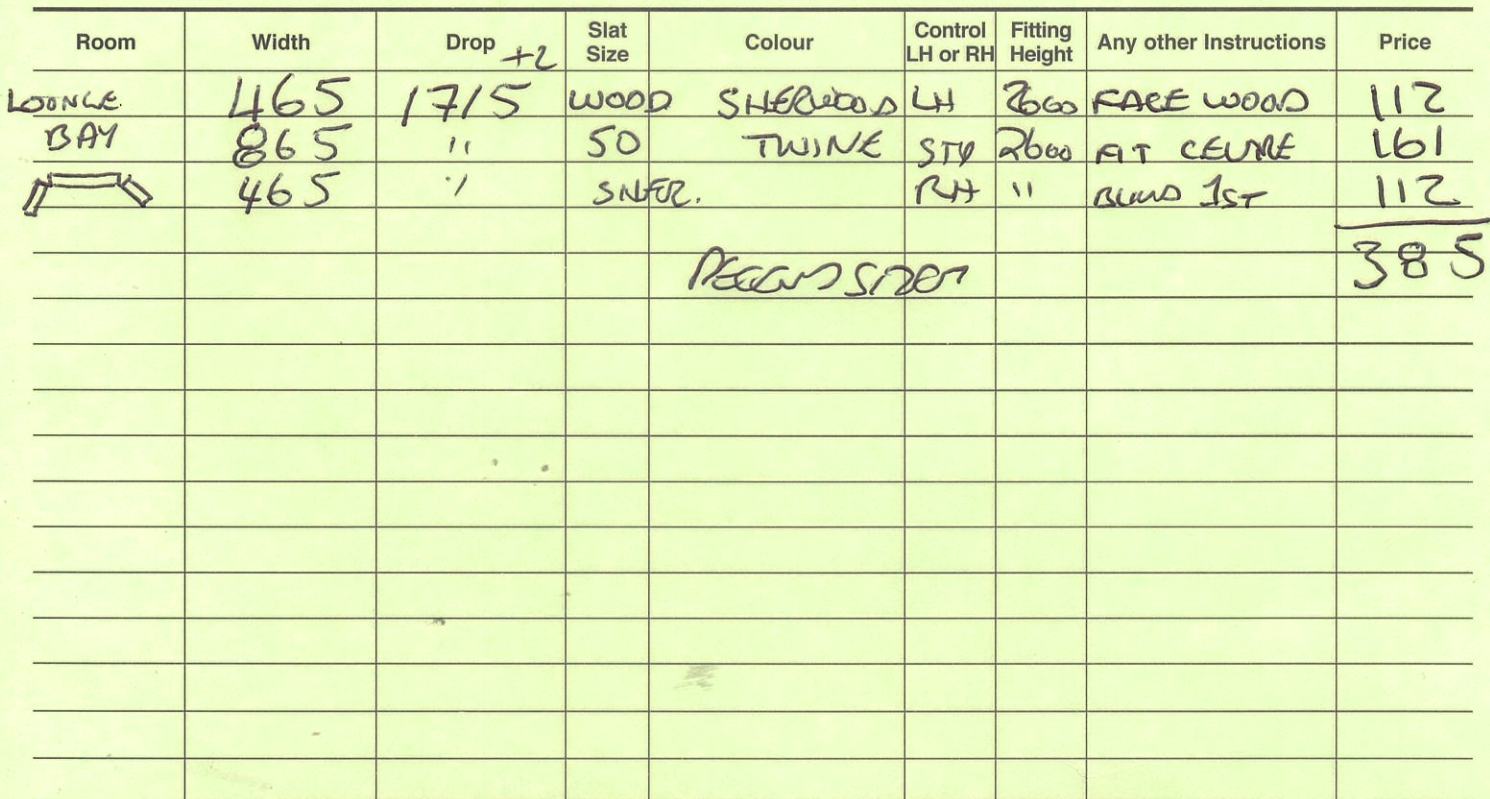 Room Width Drop +2 Slat Size Colour Control LH or RH Fitting Height Any other Instructions Price
LOUNGE 465 1715 WOOD SHERWOOD LH 2600 FACE WOOD 112
BAY 865 " 50 TWINE STD 2600 FIT CENTRE 161
465 " RH " BLIND 1ST 112
385